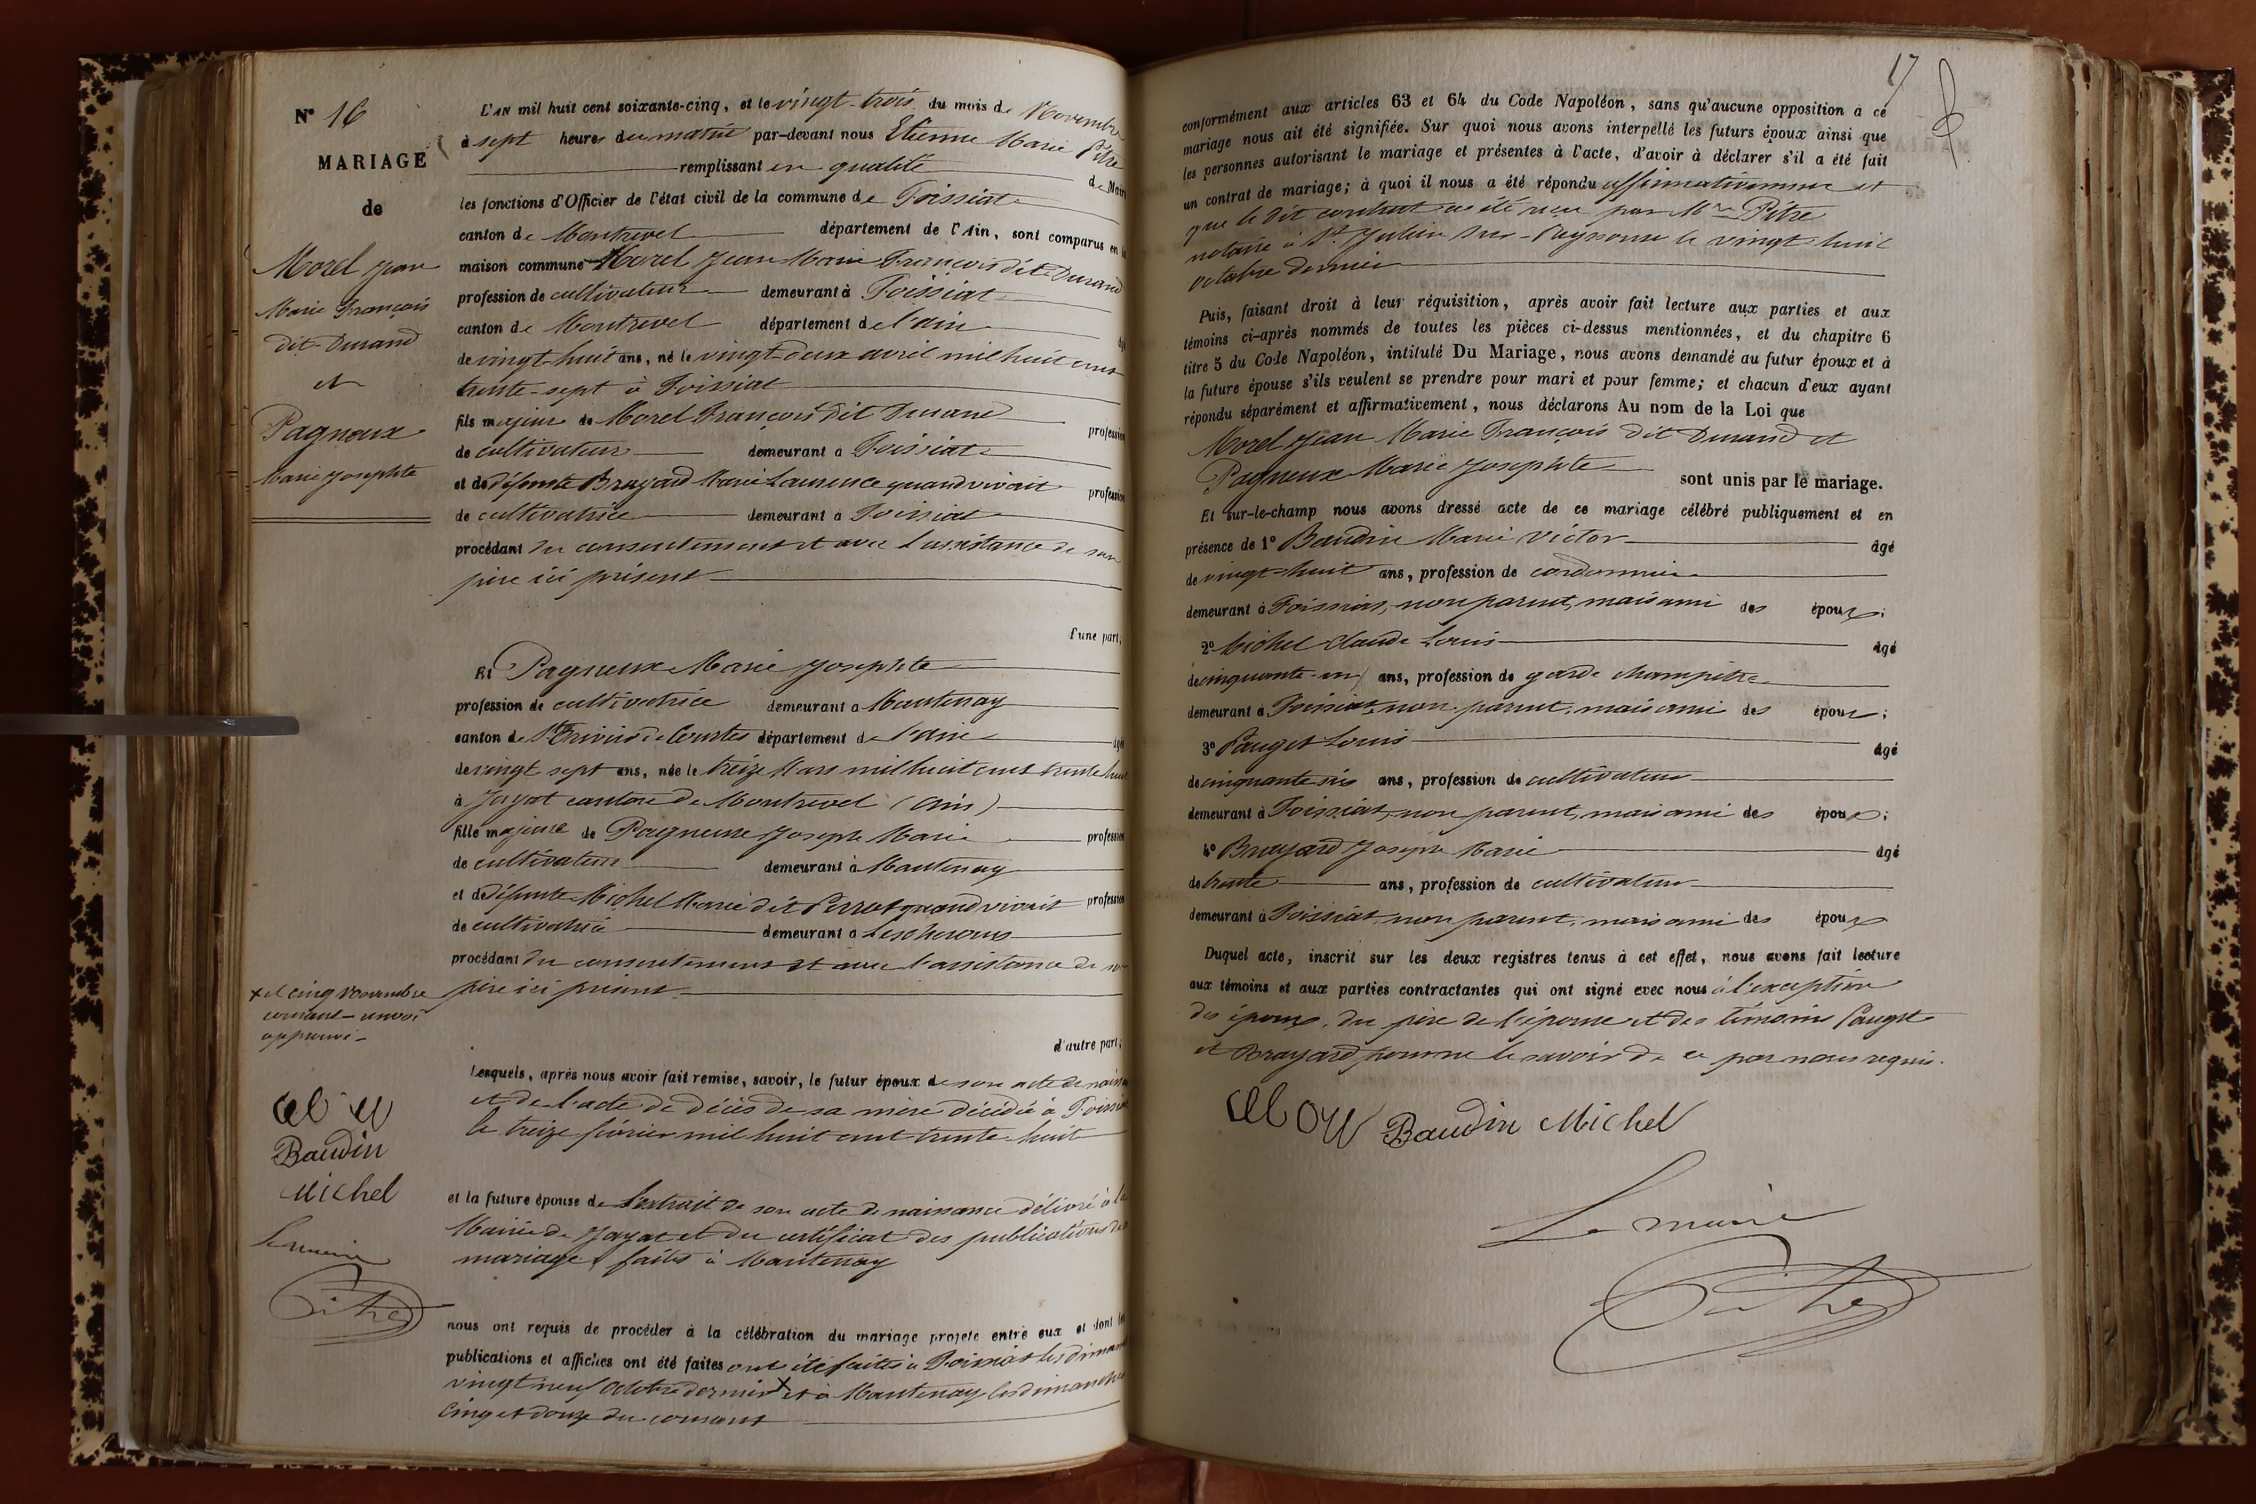 N° 16
MARIAGE
de
Morel Jean
Marie François
dit Durand
et
Pagneux
Marie Josephte
L'AN mil huit cent soixante-cinq, et le vingt-trois du mois de Novembre
à sept heures du matin par-devant nous Etienne Marie Pitre
remplissant en qualité de Maire
les fonctions d'Officier de l'état civil de la commune de Foissiat
canton de Montrevel département de l'Ain, sont comparus en la
maison commune Morel Jean Marie François dit Durand
profession de cultivateur demeurant à Foissiat
canton de Montrevel département de l'ain âgé
de vingt-huit ans, né le vingt-deux avril mil huit cent
trente-sept à Foissiat
fils majeur de Morel François dit Durand profession
de cultivateur demeurant à Foissiat
et de défunte Brayard Marie Laurence quand vivait profession
de cultivatrice demeurant à Foissiat
procédant du consentement et avec l'assistance de son
père ici présent
d'une part;
Et Pagneux Marie Josephte
profession de cultivatrice demeurant à Mantenay
canton de St Trivier de Courtes département de l'ain âgée
de vingt sept ans, née le treize Mars mil huit cent trente huit
à Jayat canton de Montrevel (ain)
fille majeure de Pagneux Joseph Marie profession
de cultivateur demeurant à Mantenay
et de défunte Michel Marie dit Perrot quand vivait profession
de cultivatrice demeurant à Lescheroux
procédant du consentement et avec l'assistance de son
père ici présent
d'autre part;
x et cinq novembre
courant - renvoi
approuvé -
Lesquels, après nous avoir fait remise, savoir, le futur époux de son acte de naiss
et de l'acte de décès de sa mère décédée à Foissiat
le treize février mil huit cent trente-huit
et la future épouse de l'extrait de son acte de naissance délivré à la
Mairie de Jayat et du certificat des publications de
mariage faites à Mantenay
nous ont requis de procéder à la célébration du mariage projeté entre eux et dont les
publications et affiches ont été faites ont été faites à Foissiat les dimanches
vingt neuf octobre dernier x et à Mantenay les dimanches
cinq et douze du courant
Baudin
Michel
Le maire
Pitre
17
conformément aux articles 63 et 64 du Code Napoléon, sans qu'aucune opposition à ce
mariage nous ait été signifiée. Sur quoi nous avons interpellé les futurs époux ainsi que
les personnes autorisant le mariage et présentes à l'acte, d'avoir à déclarer s'il a été fait
un contrat de mariage; à quoi il nous a été répondu affirmativement et
que le dit contrat a été reçu par Me Pitre
notaire à St Julien sur-Reyssouze le vingt-huit
octobre dernier
Puis, faisant droit à leur réquisition, après avoir fait lecture aux parties et aux
témoins ci-après nommés de toutes les pièces ci-dessus mentionnées, et du chapitre 6
titre 5 du Code Napoléon, intitulé Du Mariage, nous avons demandé au futur époux et à
la future épouse s'ils veulent se prendre pour mari et pour femme; et chacun d'eux ayant
répondu séparément et affirmativement, nous déclarons Au nom de la Loi que
Morel Jean Marie François dit Durand et
Pagneux Marie Josephte sont unis par le mariage.
Et sur-le-champ nous avons dressé acte de ce mariage célébré publiquement et en
présence de 1° Baudin Marie Victor âgé
de vingt-huit ans, profession de cordonnier
demeurant à Foissiat, non parent, mais ami des époux;
2° Michel Claude Louis âgé
de cinquante-un ans, profession de garde champêtre
demeurant à Foissiat, non parent, mais ami des époux;
3° Pauget Louis âgé
de cinquante six ans, profession de cultivateur
demeurant à Foissiat, non parent, mais ami des époux;
4° Brayard Joseph Marie âgé
de trente ans, profession de cultivateur
demeurant à Foissiat, non parent, mais ami des époux
Duquel acte, inscrit sur les deux registres tenus à cet effet, nous avons fait lecture
aux témoins et aux parties contractantes qui ont signé avec nous à l'exception
des époux, du père de l'épouse et des témoins Pauget
et Brayard pour ne le savoir de ce par nous requis.
Baudin Michel
Le maire
Pitre